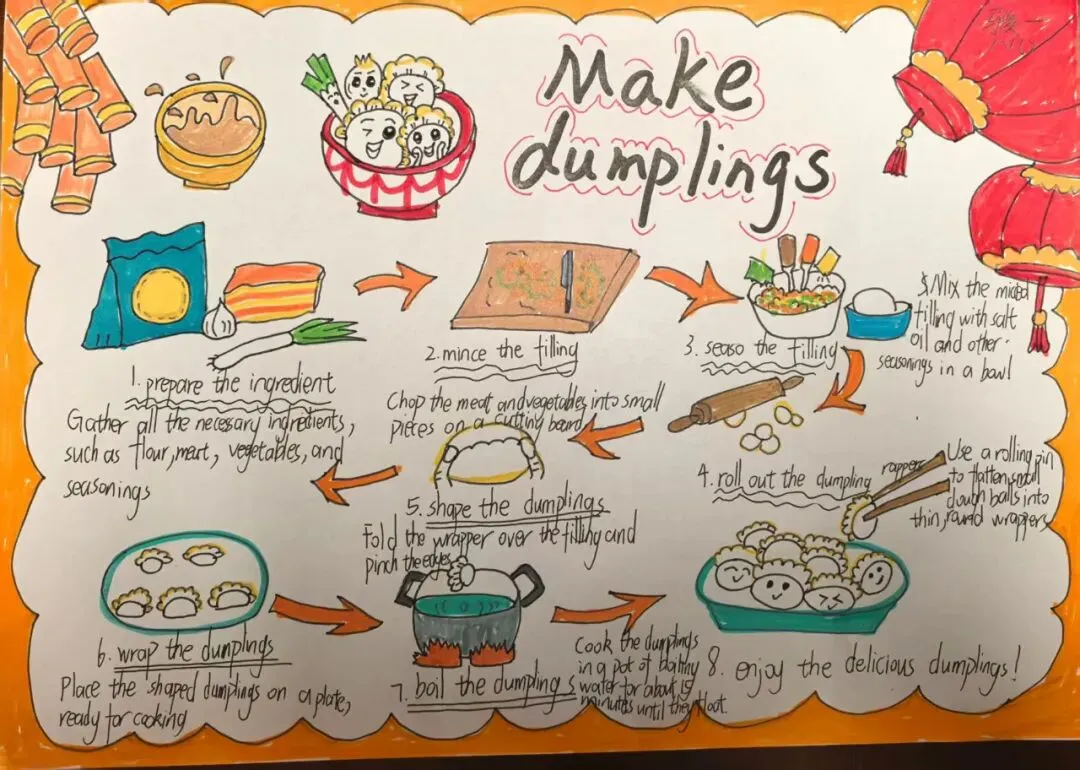 Make
dumplings
1. prepare the ingredient
Gather all the necessary ingredients,
such as flour, meat, vegetables, and
seasonings
2. mince the filling
Chop the meat and vegetables into small
pieces on a cutting board
3. seaso the filling
Mix the minced
filling with salt
oil and other
seasonings in a bowl
4. roll out the dumpling
rappers
Use a rolling pin
to flatten small
dough balls into
thin, round wrappers
5. shape the dumplings
Fold the wrapper over the filling and
pinch the edges
6. wrap the dumplings
Place the shaped dumplings on a plate,
ready for cooking
7. boil the dumplings
Cook the dumplings
in a pot of boiling
water for about 15
minutes until they float.
8. enjoy the delicious dumplings!